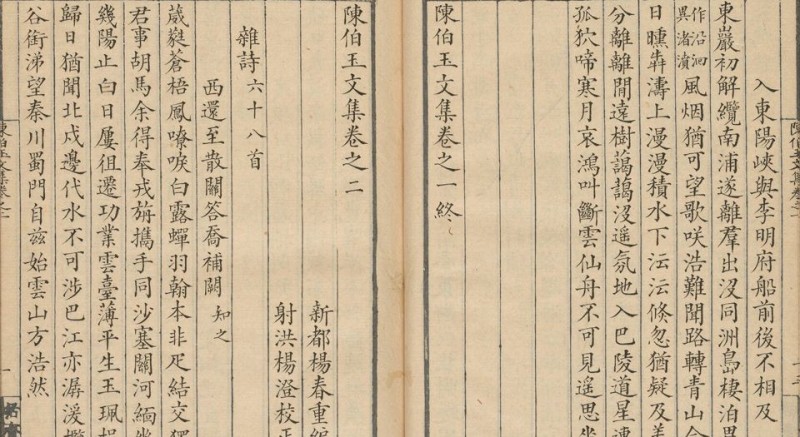 入東陽峽與李明府船前後不相及
東巖初解纜南浦遂離羣出沒同洲島棲泊
作沿洄
異渚濆風烟猶可望歌咲浩難聞路轉青山
日曛犇濤上漫漫積水下沄沄倏忽猶疑及
分離離間遠樹藹藹沒遙氛地入巴陵道星
孤狖啼寒月哀鴻叫斷雲仙舟不可見遙思
陳伯玉文集卷之一終
陳伯玉文集卷之二
新都楊春重編
射洪楊澄校正
雜詩六十八首
西還至散關答喬補闕知之
葳蕤蒼梧鳳嘹唳白露蟬羽翰本非匹結交
君事胡馬余得奉戎旃攜手同沙塞關河緬
幾陽止白日屢徂遷功業雲臺薄平生玉珮
歸日猶聞北戍邊代水不可涉巴江亦潺湲
谷銜涕望秦川蜀門自茲始雲山方浩然